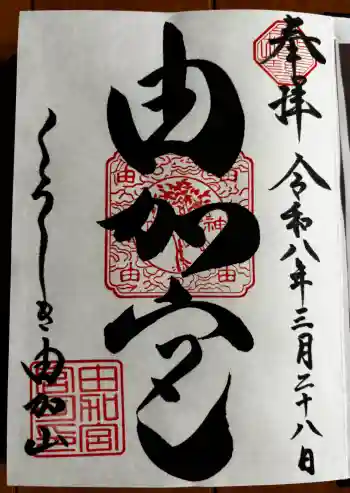 奉拝 令和八年三月二十八日
由加宮
くらしき由加山